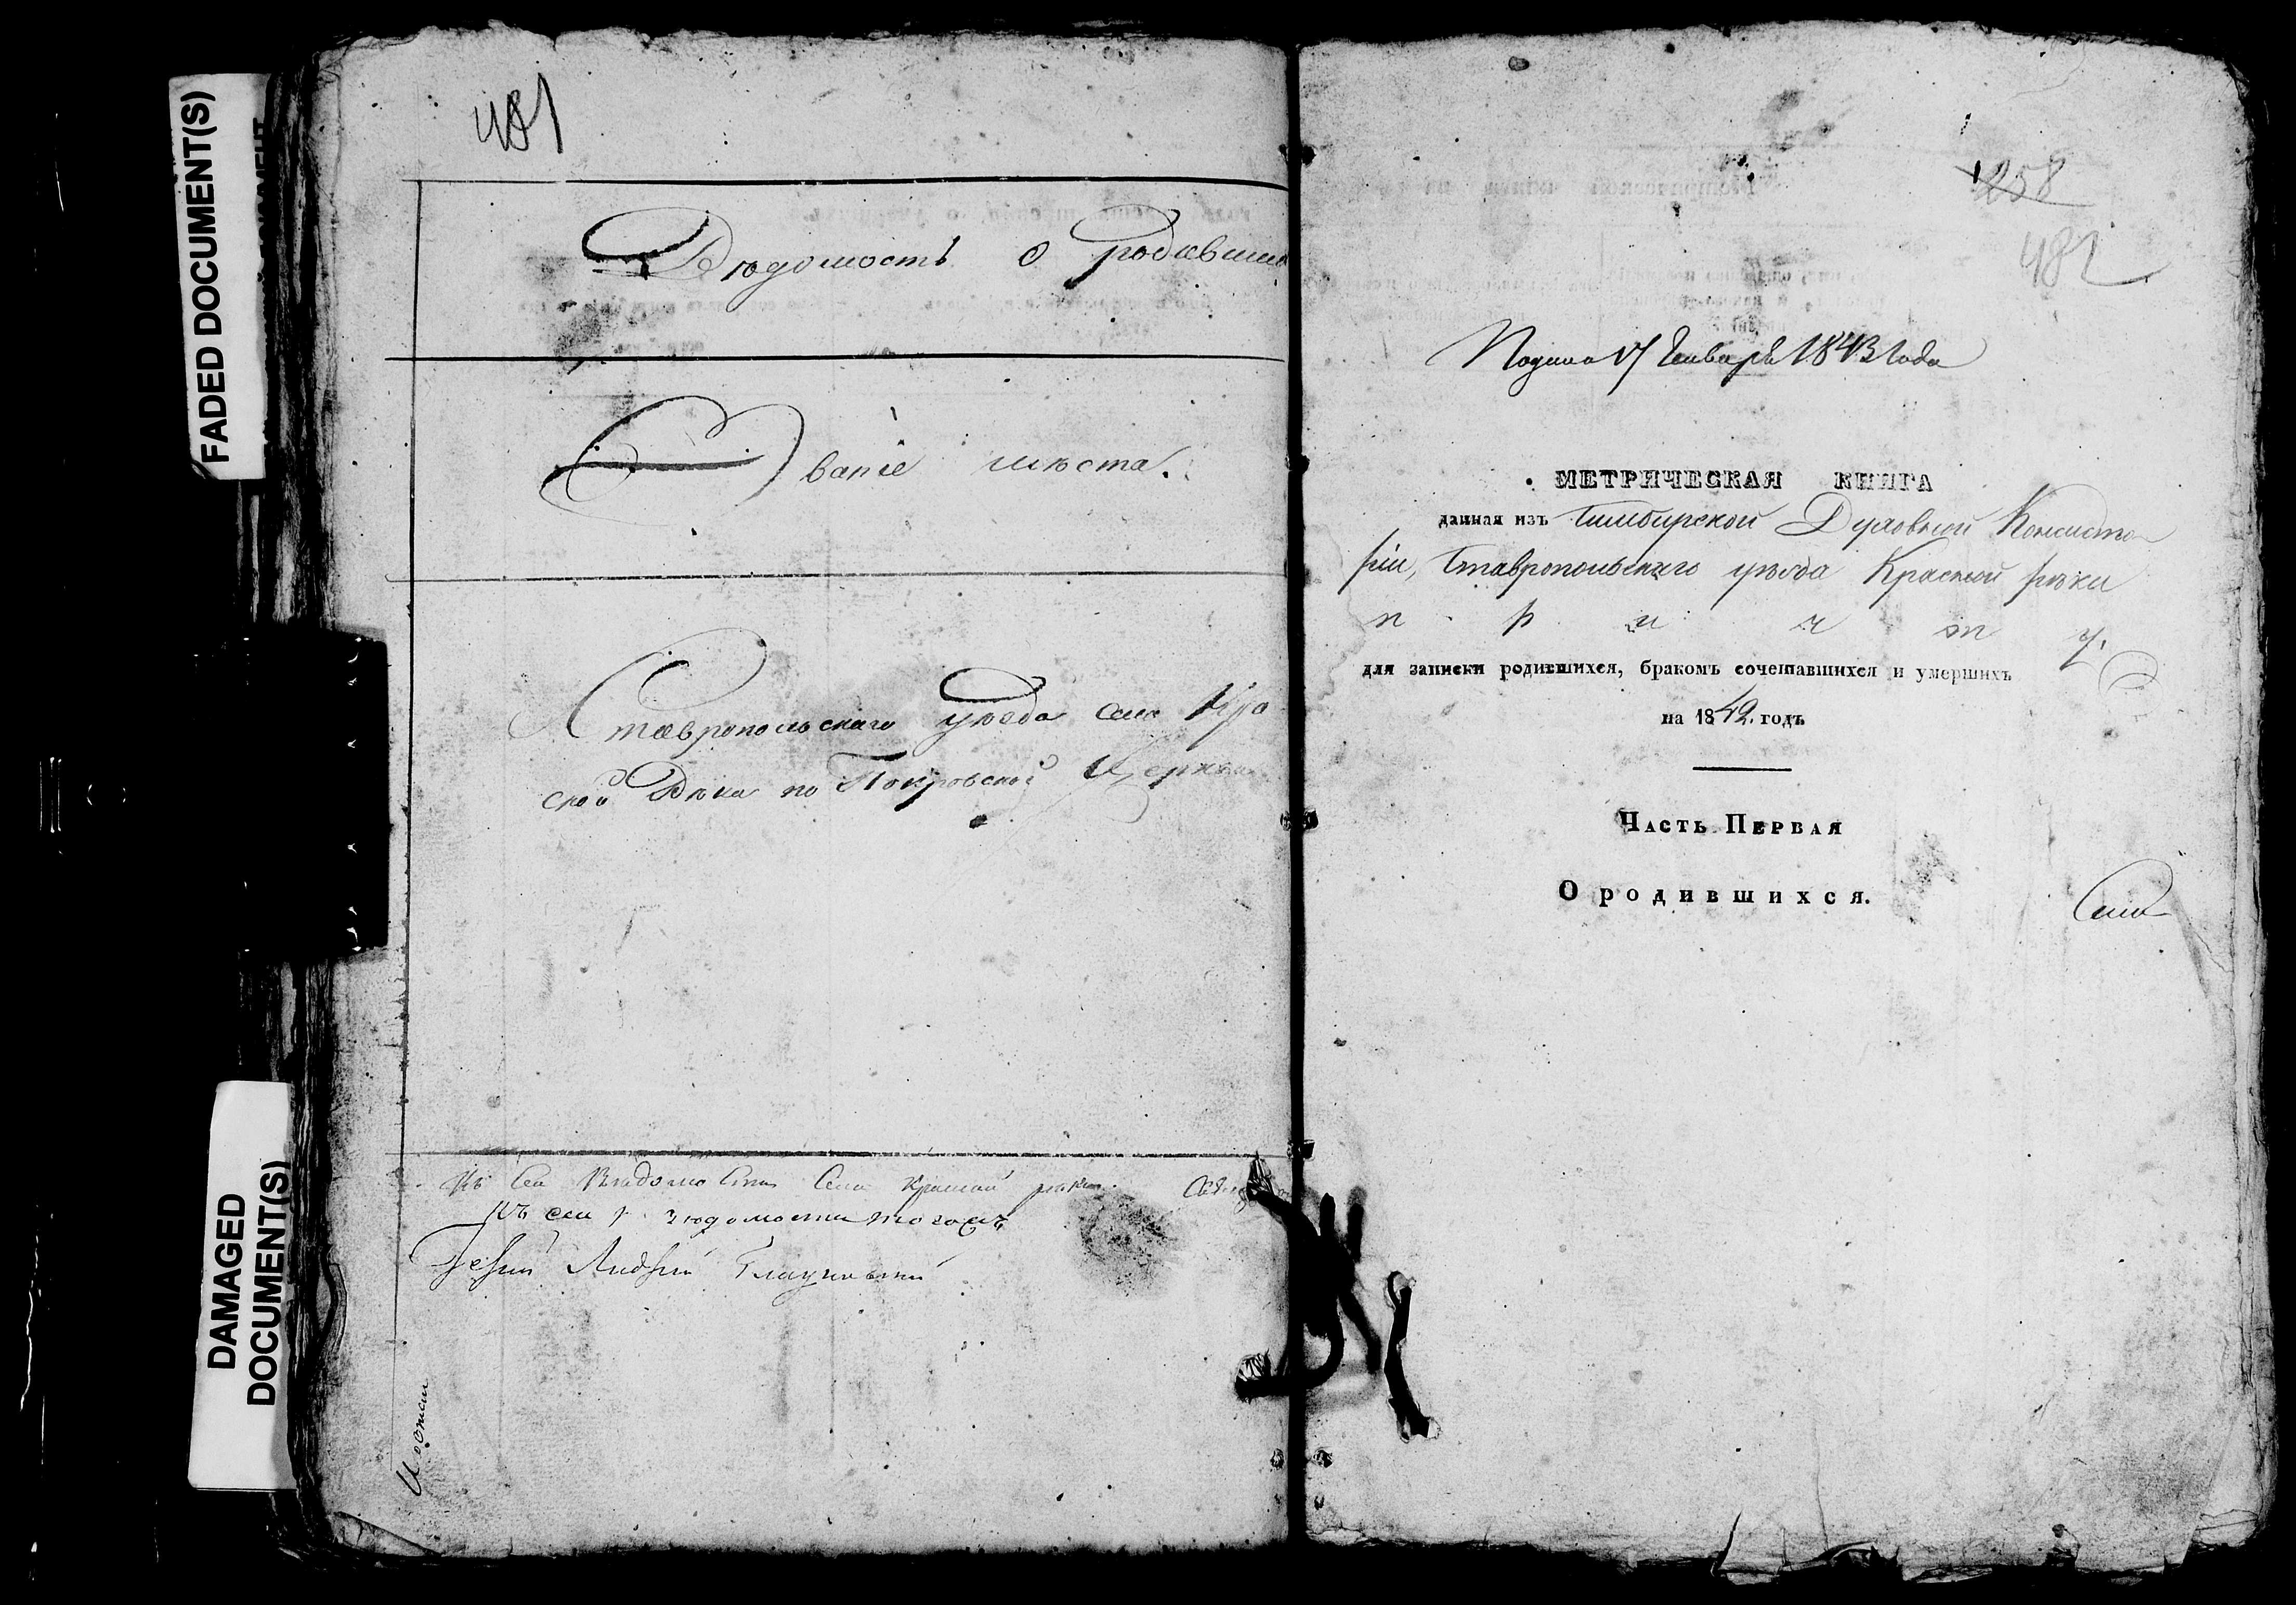 FADED DOCUMENT(S)
DAMAGED
DOCUMENT(S)
481
Вѣдомость о родивших
Званіе мѣста.
Ставропольскаго уѣзда села Кра
сной Рѣки по Покровской Церкви
Къ сей Вѣдомости Села Красной рѣки
Къ сей вѣдомости
Іерей Андрей
258
482
Подана 17 Генваря 1843 года
МЕТРИЧЕСКАЯ КНИГА
данная изъ Симбирской Духовной Консисто
ріи, Ставропольскаго уѣзда Красной рѣки
п р и ч т у.
для записки родившихся, бракомъ сочетавшихся и умершихъ
на 1842. годъ
Часть Первая
О родившихся.